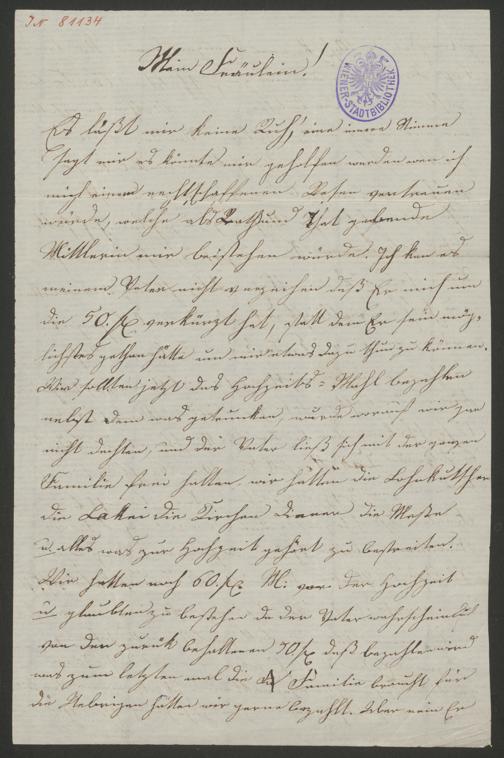 JN 81134
Mein Fräulein!
WIENER-STADTBIBLIOTHEK
Es läßt mir keine Ruh, eine innere Stimme
sagt mir es könnte mir geholfen werden wen ich
mich einem rechtschaffenen Wesen vertrauen
würde, welche als Rath und That gebende
Mittlerin mir beistehen würde. Ich kan es
meinem Vater nicht verzeihen daß Er mich um
die 50. fl verkürzt hat, statt dem Er sein mög-
lichstes gethan hätte um mir etwas dazu thun zu können.
Wir sollten jetzt das Hochzeits-Mahl bezahlen
nebst dem was getrunken, wurde worauf wir gar
nicht dachten, und der Vater ließ sich mit der ganzen
Familie frei halten. wir hatten die Lohnkutscher
die Lakei die Kirchen diener die Messe
u alles was zur Hochzeit gehört zu bestreiten.
Wir hatten noch 60. fl. M: vor der Hochzeit
u glaubten zu bestehen da der Vater wahrscheinlich
von den zurük behaltenen 50 fl daß bezahlen wird
was zum letzten mal die Familie braucht für
die Uebrigen hätten wir gerne bezahlt. Aber nein Er